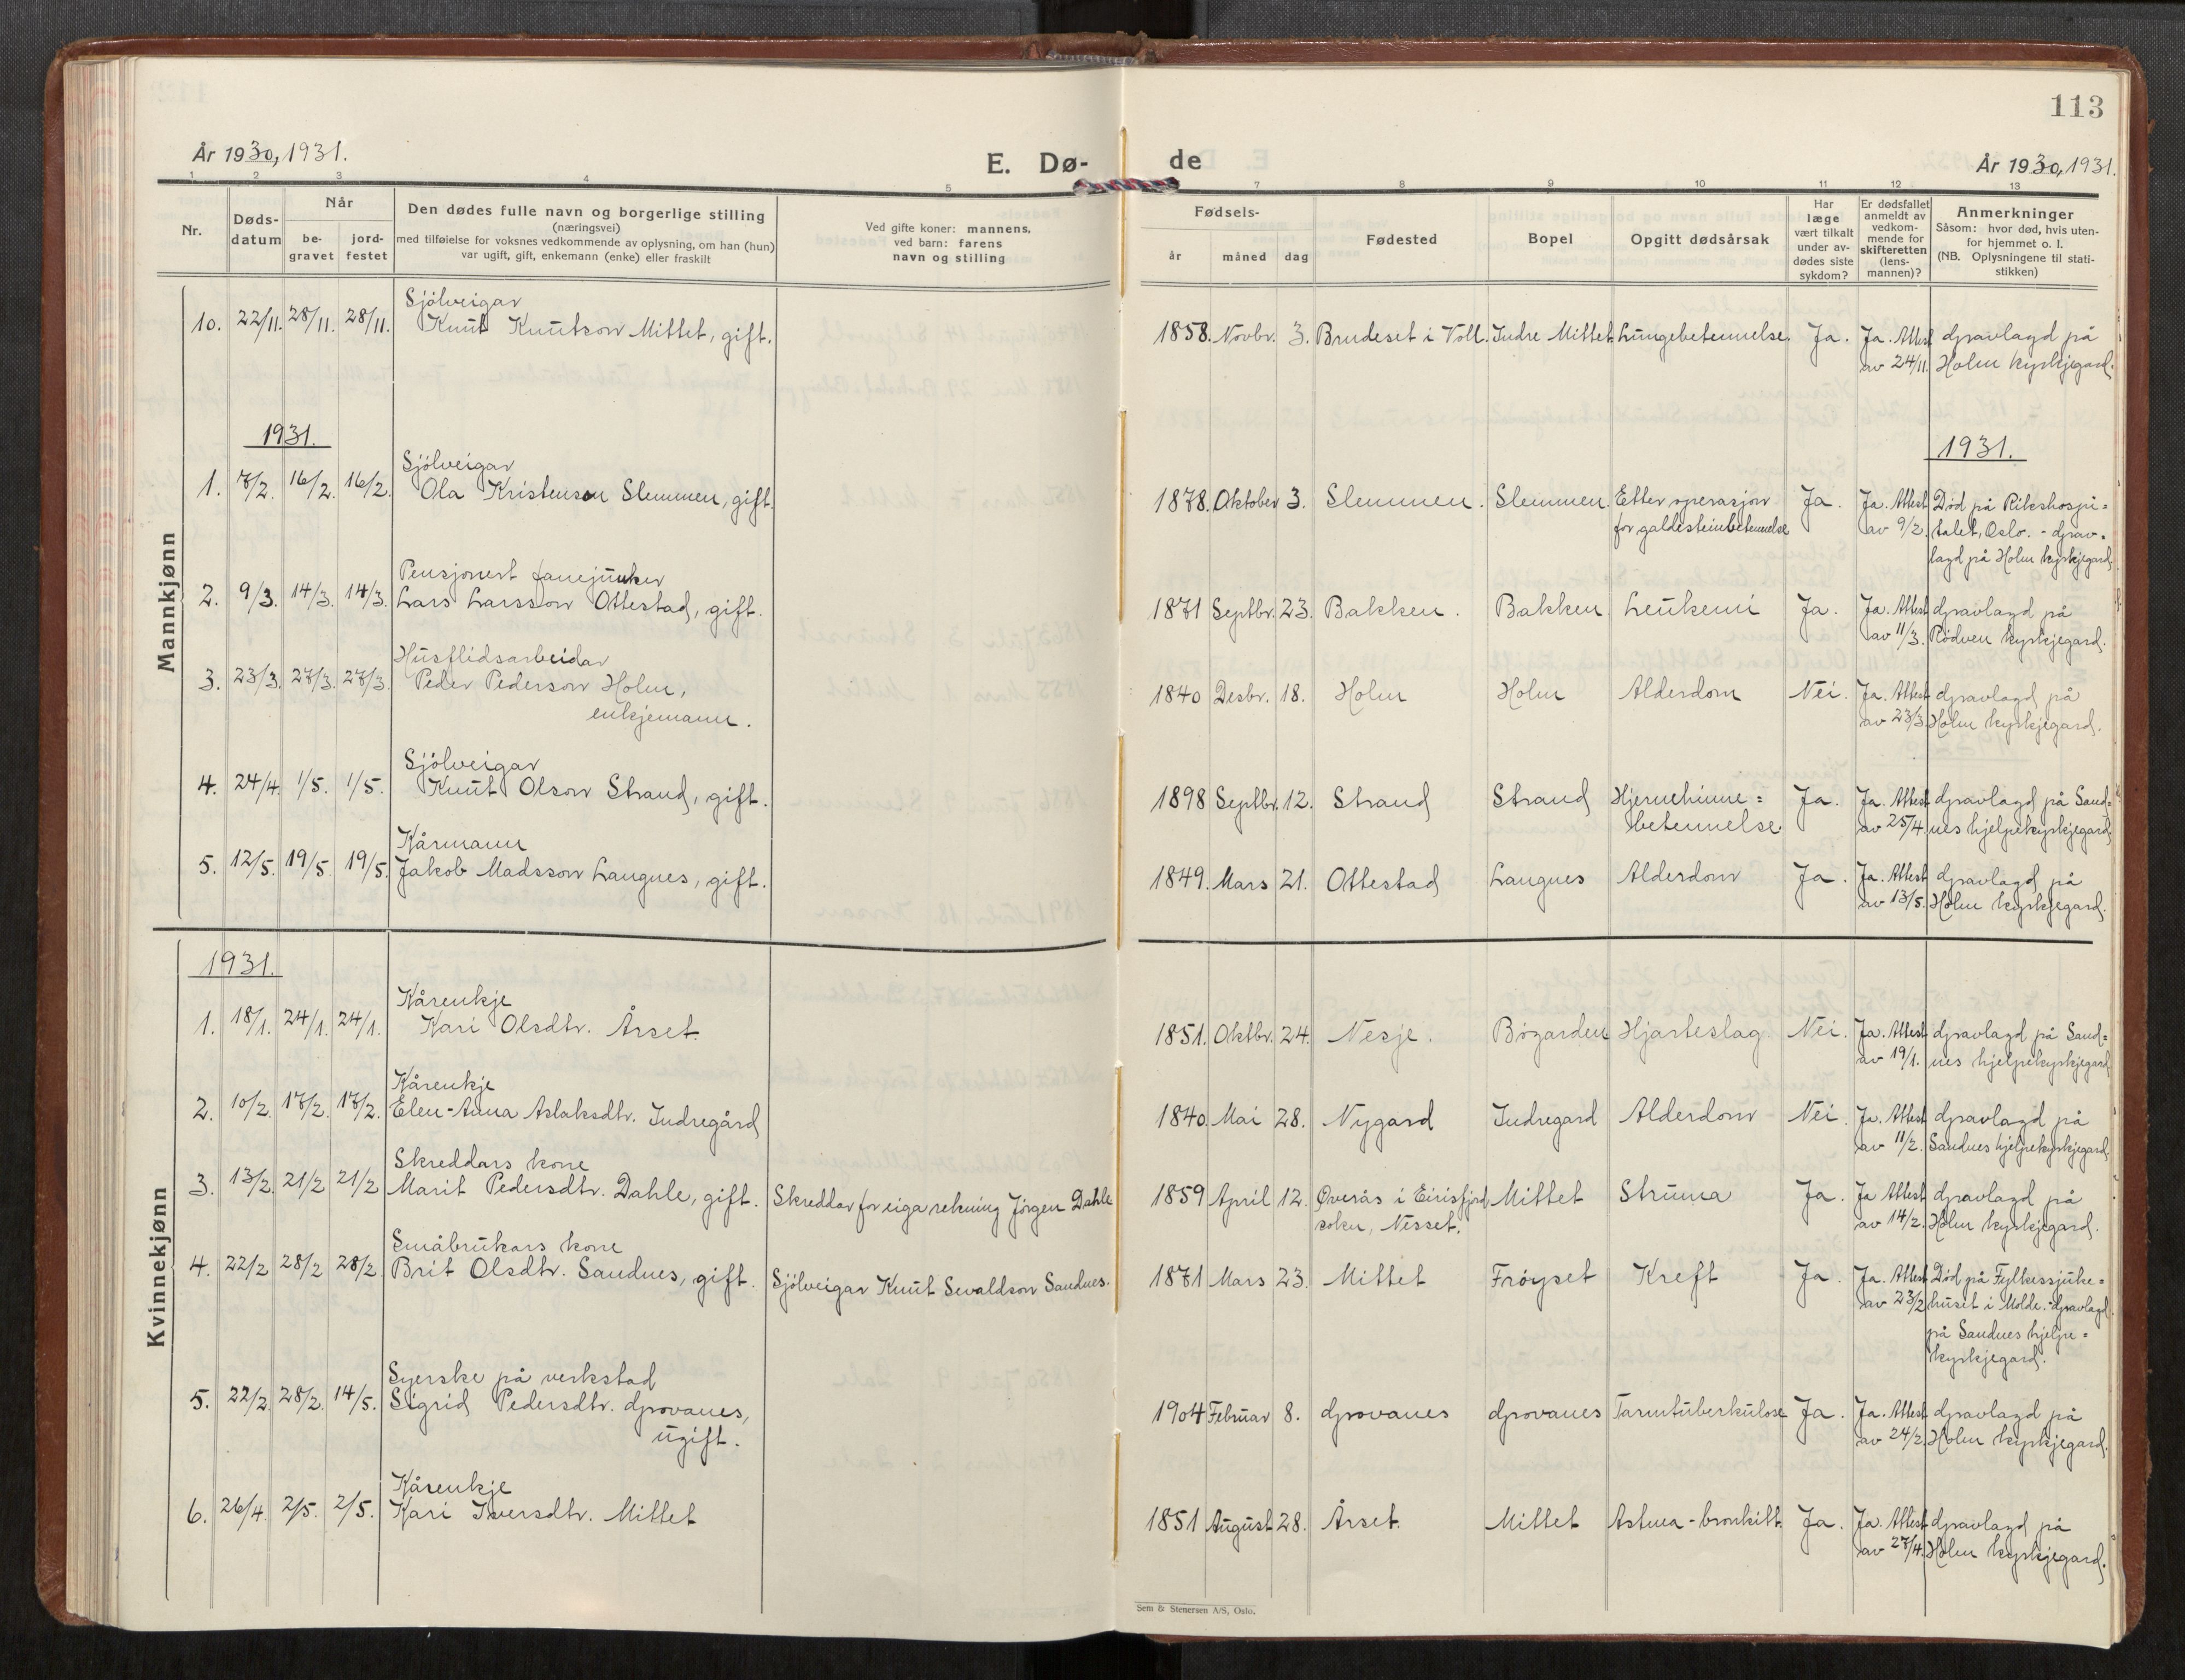 113
År 1930, 1931.
E. Dø-
de
År 1930, 1931.
1 2 3 4 5 7 8 9 10 11 12 13
Nr.
Døds-
datum
Når
be-
gravet
jord-
festet
Den dødes fulle navn og borgerlige stilling
(næringsvei)
med tilføielse for voksnes vedkommende av oplysning, om han (hun)
var ugift, gift, enkemann (enke) eller fraskilt
Ved gifte koner: mannens.
ved barn: farens
navn og stilling
Fødsels-
år måned dag
Fødested
Bopel
Opgitt dødsårsak
Har
læge
vært tilkalt
under av-
dødes siste
sykdom?
Er dødsfallet
anmeldt av
vedkom-
mende for
skifteretten
(lens-
mannen)?
Anmerkninger
Såsom: hvor død, hvis uten-
for hjemmet o. l.
(NB. Oplysningene til stati-
stikken)
Mannkjønn
Sjölveigar
10. 22/11. 28/11. 28/11. Knut Knutson Mittet, gift. 1858. Novbr. 3. Brudeset i Voll. Indre Mittet Lungebetennelse. Ja. Ja. Attest gravlagd på
av 24/11. Holm kyrkjegard.
1931. 1931.
Sjölveigar
1. 7/2. 16/2. 16/2. Ola Kristenson Slemmen, gift. 1878. Oktober 3. Slemmen. Slemmen. Etter operasjon Ja. Ja. Attest Död på Rikshospi=
for galdesteinbetennelse av 9/2. talet, Oslo. - Grav-
lagd på Holm kyrkjegard.
Pensjonert fanejunker
2. 9/3. 14/3. 14/3. Lars Larsson Ottestad, gift. 1871 Septbr. 23. Bakken. Bakken Leukemi Ja. Ja. Attest gravlagd på
av 11/3. Rödven kyrkjegard.
Husflidsarbeidar
3. 23/3. 27/3. 27/3. Peder Pederson Holm, 1840 Desbr. 18. Holm Holm Alderdom Nei. Ja. Attest gravlagd på
enkjemann. av 23/3. Holm kyrkjegard.
Sjölveigar
4. 24/4. 1/5. 1/5. Knut Olson Strand, gift. 1898 Septbr. 12. Strand Strand Hjernehinne= Ja. Ja. Attest gravlagd på Sand=
betennelse av 25/4. nes hjelpekyrkjegard.
Kårmann
5. 12/5. 19/5. 19/5. Jakob Madsson Langnes, gift. 1849. Mars 21. Ottestad Langnes Alderdom Ja. Ja. Attest gravlagd på
av 13/5. Holm kyrkjegard.
Kvinnekjønn
1931.
Kårenkje
1. 18/1. 24/1. 24/1. Kari Olsdtr. Årset. 1851. Oktbr. 24. Nesje. Bögarden Hjarteslag Nei. Ja. Attest gravlagd på Sand=
av 19/1. nes hjelpekyrkjegard
Kårenkje
2. 10/2. 17/2. 17/2. Elen-Anna Aslaksdtr. Indregård 1840. Mai 28. Nygard Indregard Alderdom Nei. Ja. Attest gravlagd på
av 11/2. Sandnes hjelpekyrkjegard.
Skreddars kone
3. 13/2. 21/2 21/2 Marit Pedersdtr. Dahle, gift. Skreddar for eiga rekning Jörgen Dahle 1859 April 12. Överås i Eirisfjord Mittet Struma Ja. Ja Attest gravlagd på
sokn, Nesset. av 14/2. Holm kyrkjegard.
Småbrukars kone
4. 22/2 28/2 28/2. Brit Olsdtr. Sandnes, gift. Sjölveigar Knut Sevaldson Sandnes. 1871 Mars 23. Mittet Fröyset Kreft Ja. Ja. Attest Död på Fylkessjuke=
av 23/2 huset i Molde. - gravlagd
på Sandnes hjelpe=
kyrkjegard.
Syerske på verkstad
5. 22/2. 28/2. 14/5. Sigrid Pedersdtr. Grovanes, 1904 Februar 8. Grovanes Grovanes Tarmtuberkulose Ja. Ja. Attest gravlagd på
ugift. av 24/2. Holm kyrkjegard.
Kårenkje
6. 26/4. 2/5. 2/5. Kari Iversdtr. Mittet 1851 August 28. Årset. Mittet Astma-bronkitt. Ja. Ja. Attest gravlagd på
av 27/4. Holm kyrkjegard.
Sem & Stenersen A/S, Oslo.